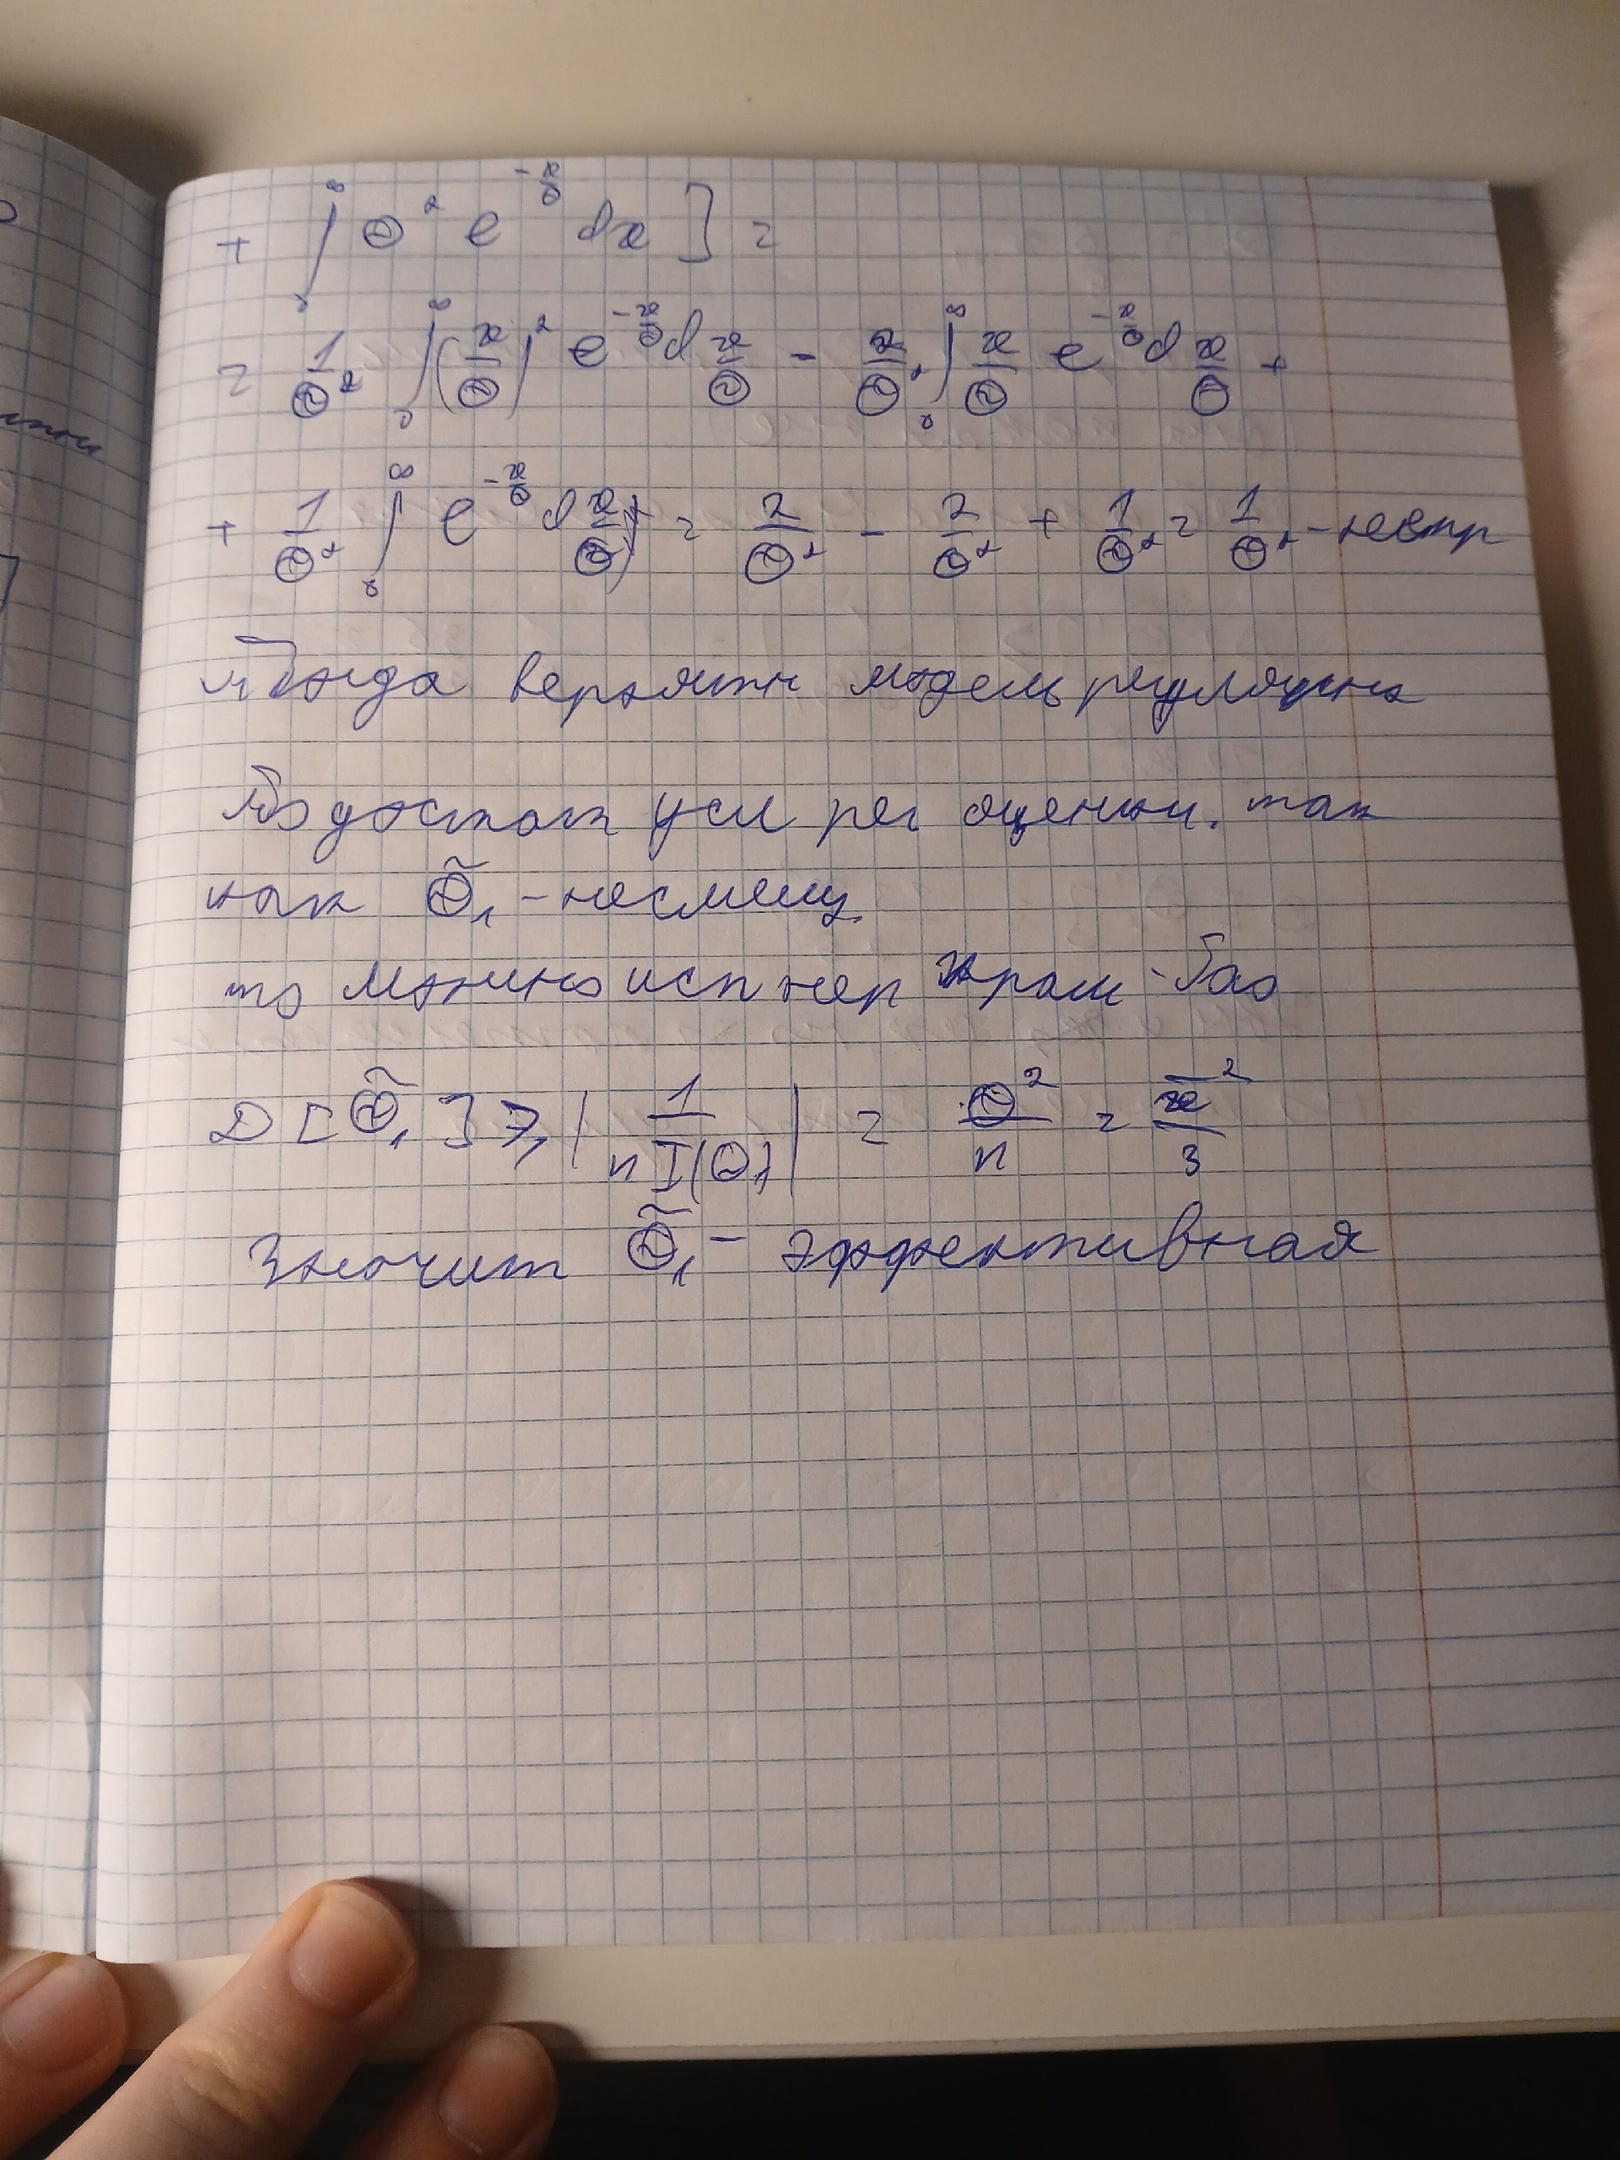 + ∫₀^∞ Θ² e^{-x/Θ} dx ] =
= 1/Θ² ∫₀^∞ (x/Θ)² e^{-x/Θ} d x/Θ - 2/Θ² ∫₀^∞ x/Θ e^{-x/Θ} d x/Θ +
+ 1/Θ² ∫₀^∞ e^{-x/Θ} d x/Θ) = 2/Θ² - 2/Θ² + 1/Θ² = 1/Θ² - непр
Тогда вероятн модель регулярна
По достат усл рег оценки. так
как Θ̃₁ - несмещ
то можно исп нер Крам-Рао
D[Θ̃₁] ≥ | 1/(n I(Θ)) | = Θ²/n = x̄²/3
Значит Θ̃₁ - эффективная